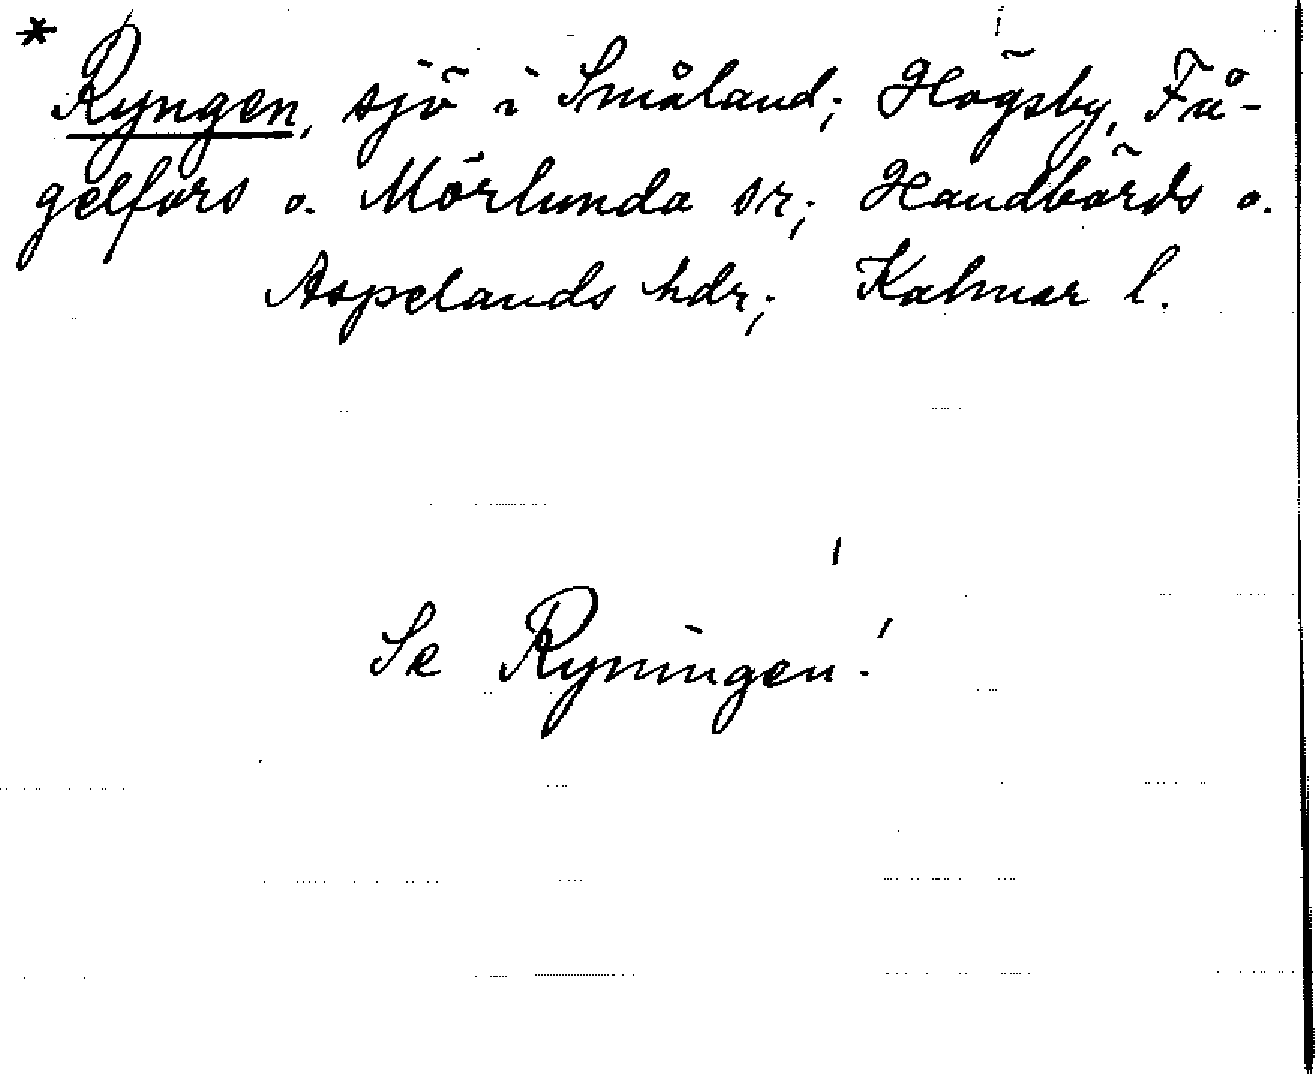 * Ryngen, sjö i Småland; Högsby, Få-
gelfors o. Mörlunda sr; Handbörds o.
Aspelands hdr; Kalmar l.
Se Ryningen!